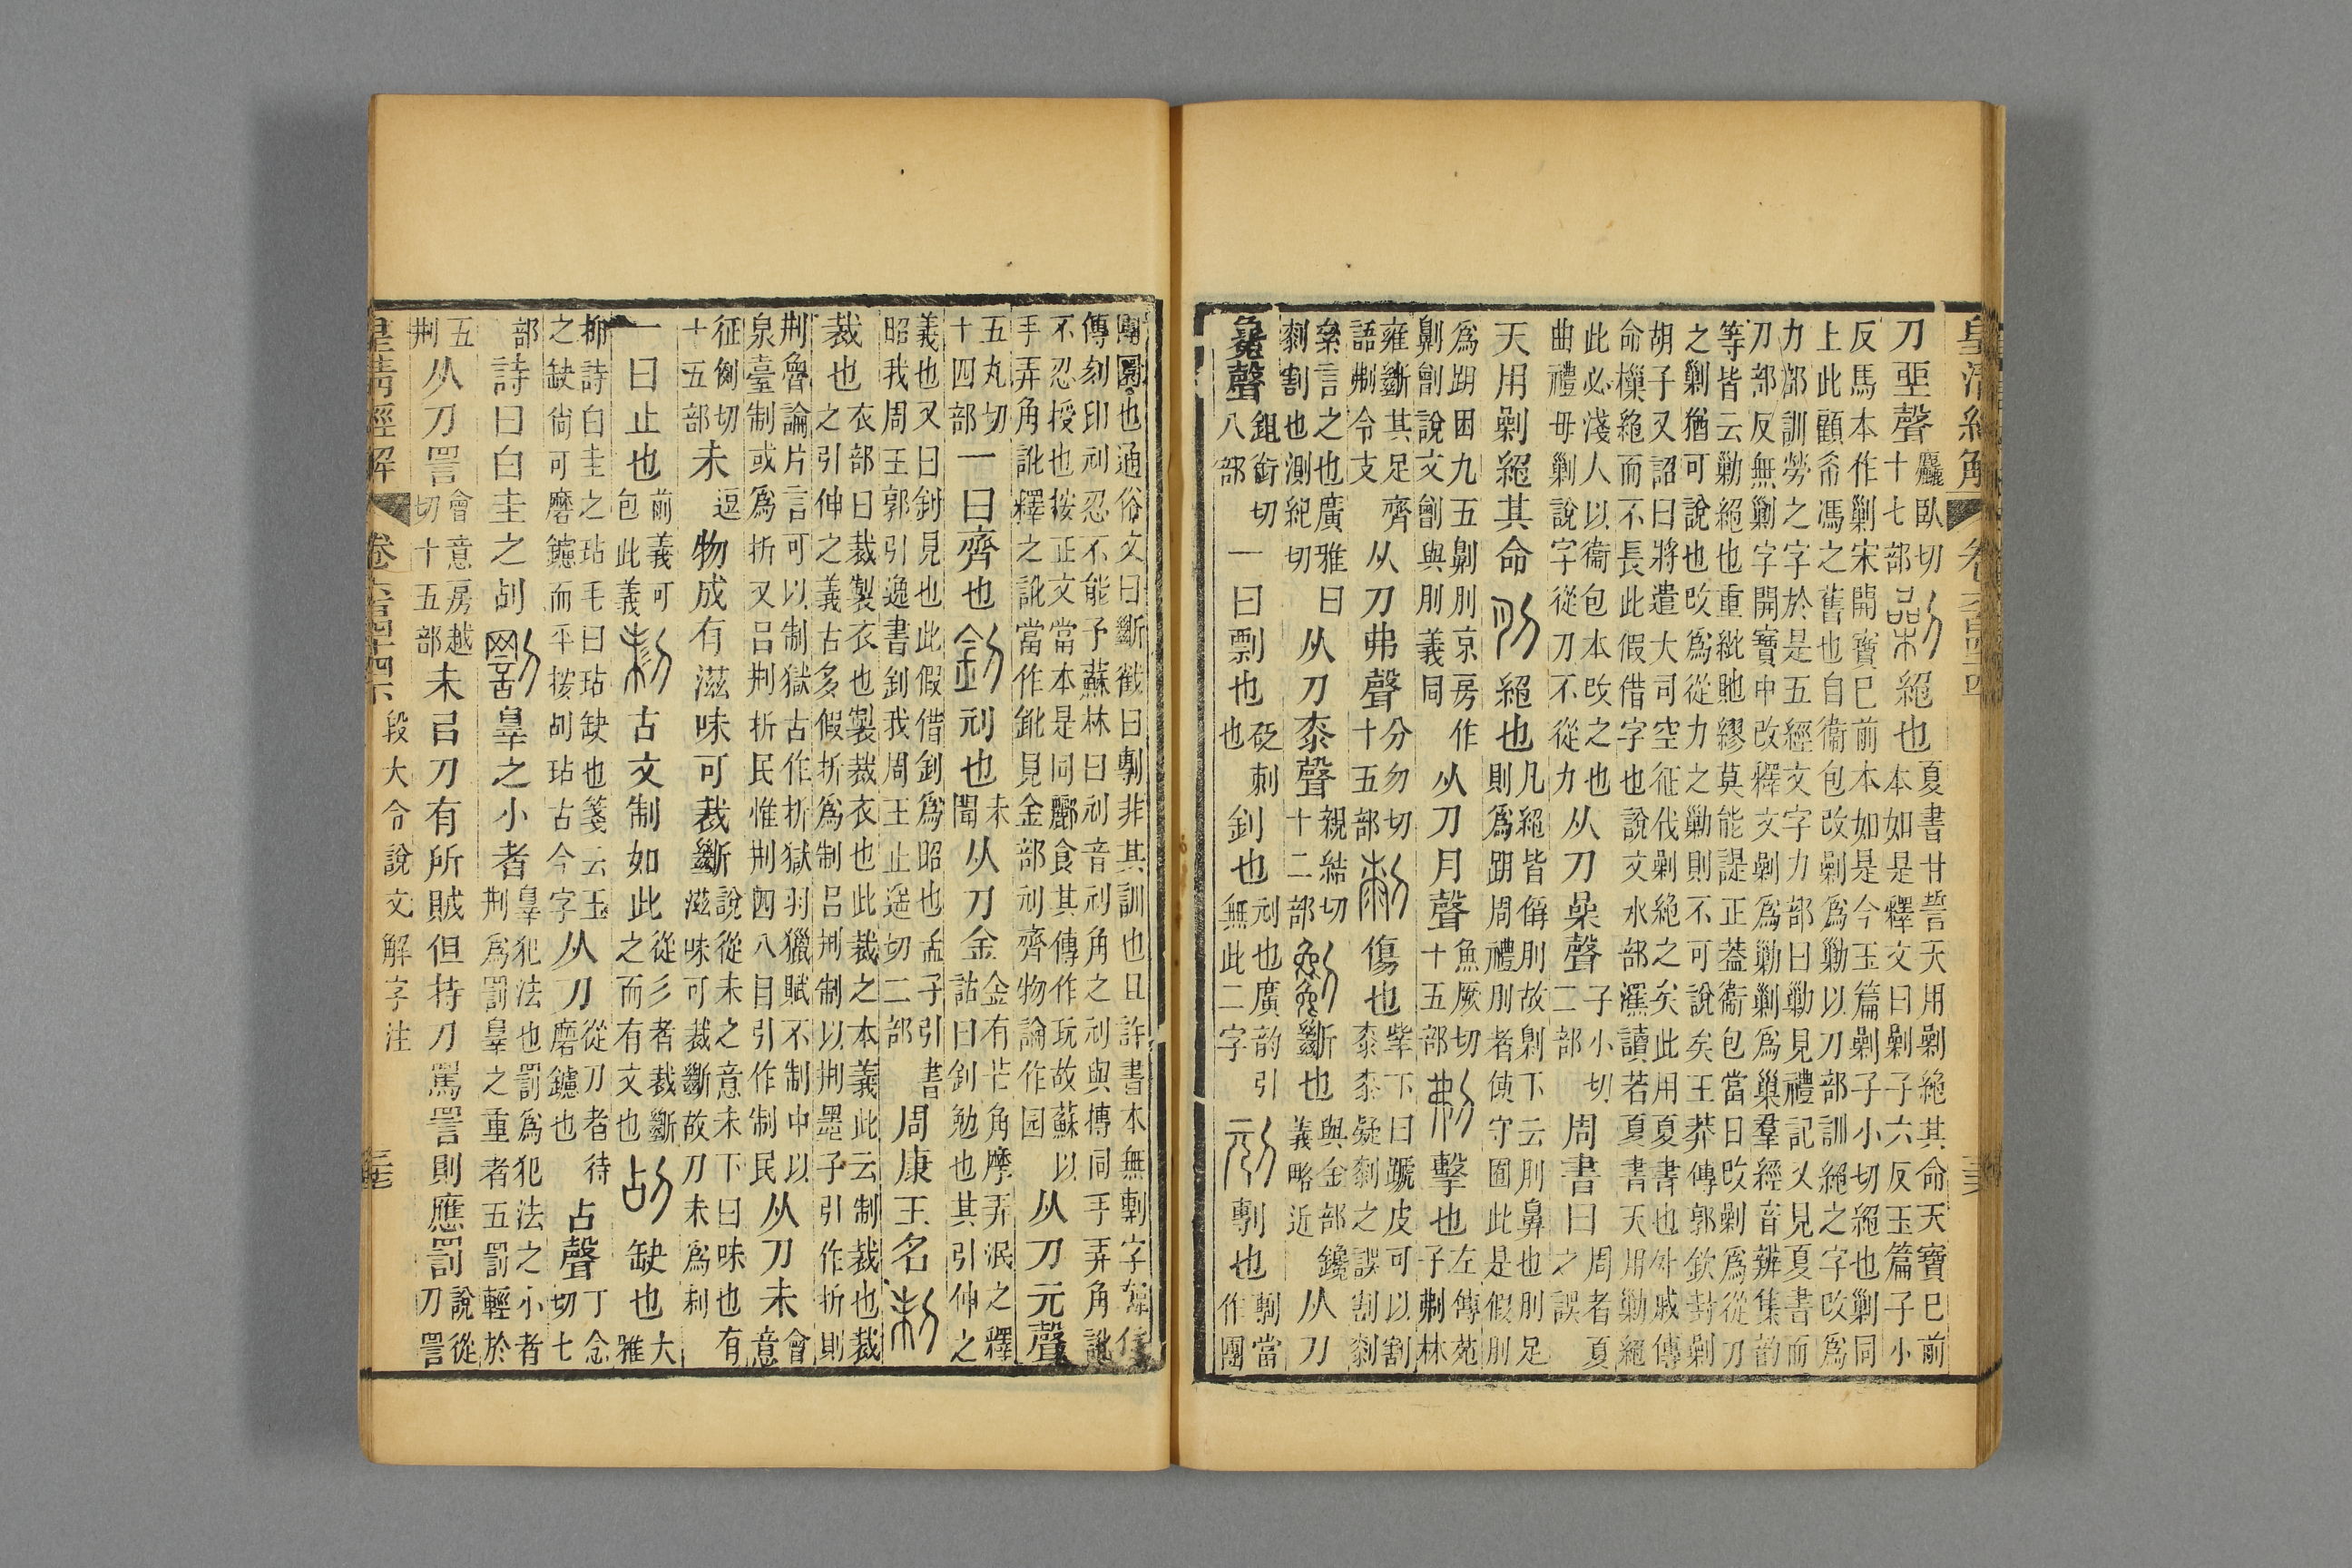 皇清經解 卷六百四十四
刀坙聲麤臥切十七部劋絕也夏書甘誓天用剿絕其命天寶巳前本如是釋文曰剿子六反玉篇子小
反馬本作剿宋開寶已前本如是今玉篇剿子小切絕也剿同上此顧希馮之舊也自衞包改剿爲勦以刀部訓絕之字改爲
力部訓勞之字於是五經文字力部曰勦見禮記又見夏書而刀部反無剿字開寶中改釋文剿爲勦剿爲巢羣經音辨集韵
等皆云勦絕也重紕貤繆莫能諟正葢衞包當日改剿爲從刀之剿猶可說也改爲從力之勦則不可說矣王莽傳郭欽封剿
胡子又詔曰將遣大司空征伐剿絕之矣此用夏書也外戚傳命樔絕而不長此假借字也說文水部灑讀若夏書天用勦絕
此必淺人以衞包本改之也曲禮毋剿說字從刀不從力从刀喿聲子小切二部周書曰周者夏之誤
天用剿絕其命刖絕也凡絕皆偁刖故劓下云刖鼻也刖足則爲跀周禮刖者使守囿此是假刖
爲跀困九五劓刖京房作劓劊說文劊與刖義同从刀月聲魚厥切十五部刜擊也左傳苑子刜林
雍斷其足齊語刜令支从刀弗聲分勿切十五部傷也桼下曰皮可以割桼桼疑剺之誤割剺
絫言之也廣雅曰剺割也測紀切从刀桼聲親結切十二部劖斷也與金部鑱義略近从刀
毚聲鉏銜切八部一曰剽也砭刺也釗也刓也廣韵引無此二字刓剸也剸當作團
團圜也通俗文曰斷截曰剸非其訓也且許書本無剸字韓信
傳刻印刓忍不能予蘇林曰刓音刓角之刓與摶同手弄角訛不忍授也按正文當本是同酈食其傳作玩故蘇以
手弄角訛釋之訛當作鈋見金部刓齊物論作园从刀元聲
五丸切十四部一曰齊也釗刓也未聞从刀金金有芒角摩弄泯之釋詁曰釗勉也其引伸之
義也又曰釗見也此假借釗爲昭也孟子引書昭我周王郭引逸書釗我周王止遙切二部周康王名制
裁也衣部曰裁製衣也製裁衣也此裁之本義此云制裁也裁之引伸之義古多假折爲制呂荆制以荆墨子引作折則
荆魯論片言可以制獄古作折獄羽獵賦不制中以泉臺制或爲折又呂荆折民惟荆四八目引作制民从刀未會意
征例切十五部未逗物成有滋味可裁斷說從未之意未下曰味也有滋味可裁斷故刀未爲制
一曰止也前義可包此義古文制如此從彡者裁斷之而有文也刮缺也大雅
抑詩白圭之玷毛曰玷缺也箋云玉之缺尙可磨鑢而平按刮玷古今字从刀從刀者待磨鑢也占聲丁念切七
部詩曰白圭之刮罰辠之小者辠犯法也罰爲犯法之小者荆爲罰辠之重者五罰輕於
五荆从刀詈會意房越切十五部未㠯刀有所賊但持刀罵詈則應罰說從刀詈
皇清經解 卷六百四十四下 段大令說文解字注 三七